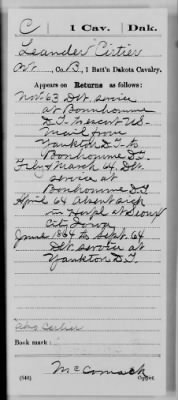 C | 1 Cav. | Dak.
Leander Cirtier
Pvt., Co. B, 1 Batt'n Dakota Cavalry.
Appears on Returns as follows:
Nov 63 Det. service
at Bonnhomme
D.T. escort U.S.
Mail from
Yankton D.T. to
Bonhomme D.T.
Feby & March 64. Det.
service at
Bonhomme D.T.
April 64 Absent sick
in Hospl at Sioux
City Iowa
June 1864 to Sept. 64
Det. service at
Yankton D.T.
Book mark:
McCormack
(546) Copyist.